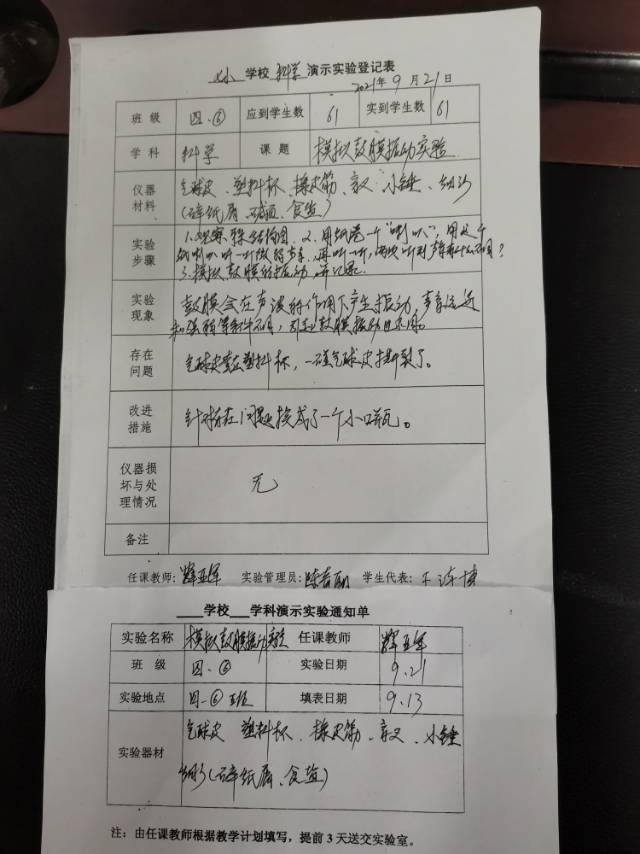 七小 学校 科学 演示实验登记表
2021年9月21日
班 级 四.⑥ 应到学生数 61 实到学生数 61
学 科 科学 课 题 模拟鼓膜振动实验
仪器材料 气球皮、塑料杯、橡皮筋、音叉、小锤、细沙
(碎纸屑、食盐)
实验步骤 1.观察耳结构图. 2.用纸卷一个"喇叭",用这个
纸喇叭听一听微弱声音,再听一听,两次听到声音有什么不同?
3.模拟鼓膜的振动并记录.
实验现象 鼓膜会在声波的作用下产生振动,声音远近
和强弱等条件不同,引起鼓膜振动也不同.
存在问题 气球皮蒙在塑料杯,一碰气球皮 裂了。
改进措施 针对存在问题换成了一个小口瓶。
仪器损坏与处理情况 无
备注
任课教师: 亚军 实验管理员: 学生代表: 王 博
学校 学科演示实验通知单
实验名称 模拟鼓膜振动实验 任课教师 亚军
班 级 四.⑥ 实验日期 9.21
实验地点 四.⑥班 填表日期 9.13
实验器材 气球皮 塑料杯、橡皮筋、音叉、小锤
细沙(碎纸屑、食盐)
注:由任课教师根据教学计划填写,提前3天送交实验室。